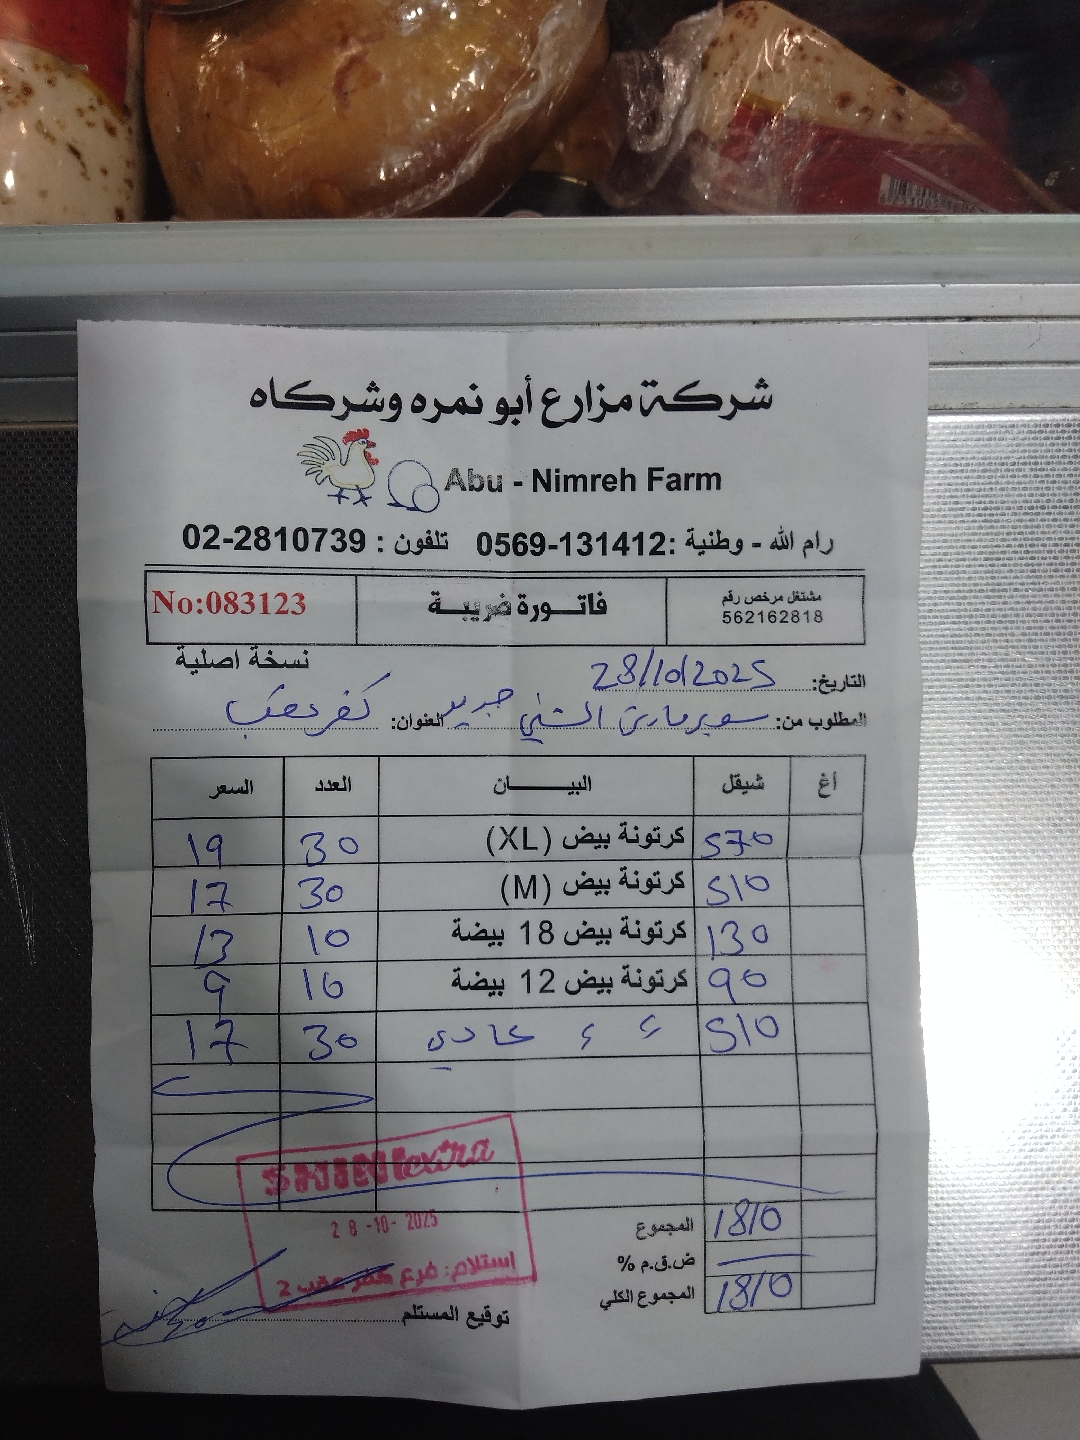 شركة مزارع أبو نمره وشركاه
Abu - Nimreh Farm
رام الله - وطنية :0569-131412 تلفون : 02-2810739
مشتغل مرخص رقم 562162818
فاتورة ضريبة
No:083123
نسخة اصلية
التاريخ: 28/10/2025
المطلوب من: سوبرماركت الشني جديد العنوان: كفر عقب
أغ شيقل البيان العدد السعر
570 كرتونة بيض (XL) 30 19
510 كرتونة بيض (M) 30 17
130 كرتونة بيض 18 بيضة 10 13
90 كرتونة بيض 12 بيضة 10 9
510 ء ء عادي 30 17
المجموع 1810
ض.ق.م %
المجموع الكلي 1810
توقيع المستلم
SHINI extra
28-10-2025
استلام: فرع كفر عقب 2